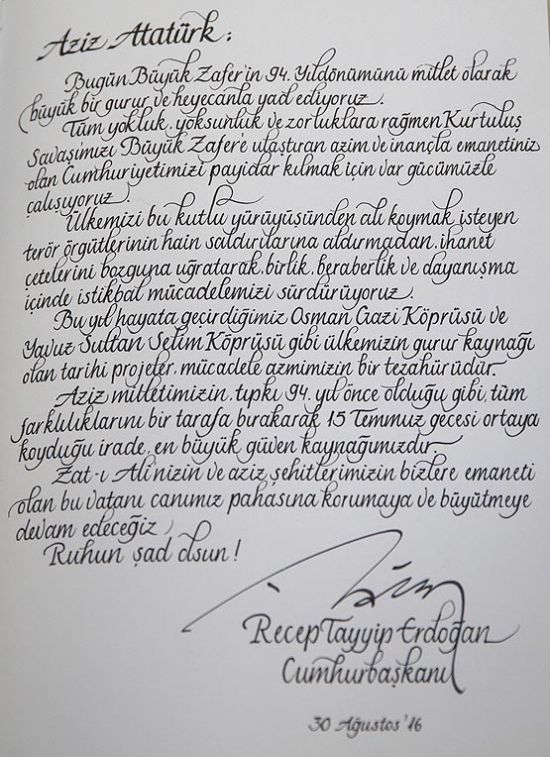 Aziz Atatürk;
Bugün Büyük Zafer'in 94. Yıldönümünü millet olarak
büyük bir gurur ve heyecanla yad ediyoruz.
Tüm yokluk, yoksunluk ve zorluklara rağmen Kurtuluş
Savaşımızı Büyük Zafer'e ulaştıran azim ve inançla emanetiniz
olan Cumhuriyetimizi payidar kılmak için var gücümüzle
çalışıyoruz.
Ülkemizi bu kutlu yürüyüşünden alı koymak isteyen
terör örgütlerinin hain saldırılarına aldırmadan, ihanet
çetelerini bozguna uğratarak, birlik, beraberlik ve dayanışma
içinde istikbal mücadelemizi sürdürüyoruz.
Bu yıl hayata geçirdiğimiz Osman Gazi Köprüsü ve
Yavuz Sultan Selim Köprüsü gibi ülkemizin gurur kaynağı
olan tarihi projeler, mücadele azmimizin bir tezahürüdür.
Aziz milletimizin, tıpkı 94. yıl önce olduğu gibi, tüm
farklılıklarını bir tarafa bırakarak 15 Temmuz gecesi ortaya
koyduğu irade, en büyük güven kaynağımızdır.
Zat-ı Ali'nizin ve aziz şehitlerimizin bizlere emaneti
olan bu vatanı canımız pahasına korumaya ve büyütmeye
devam edeceğiz,
Ruhun şad olsun!
Recep Tayyip Erdoğan
Cumhurbaşkanı
30 Ağustos '16